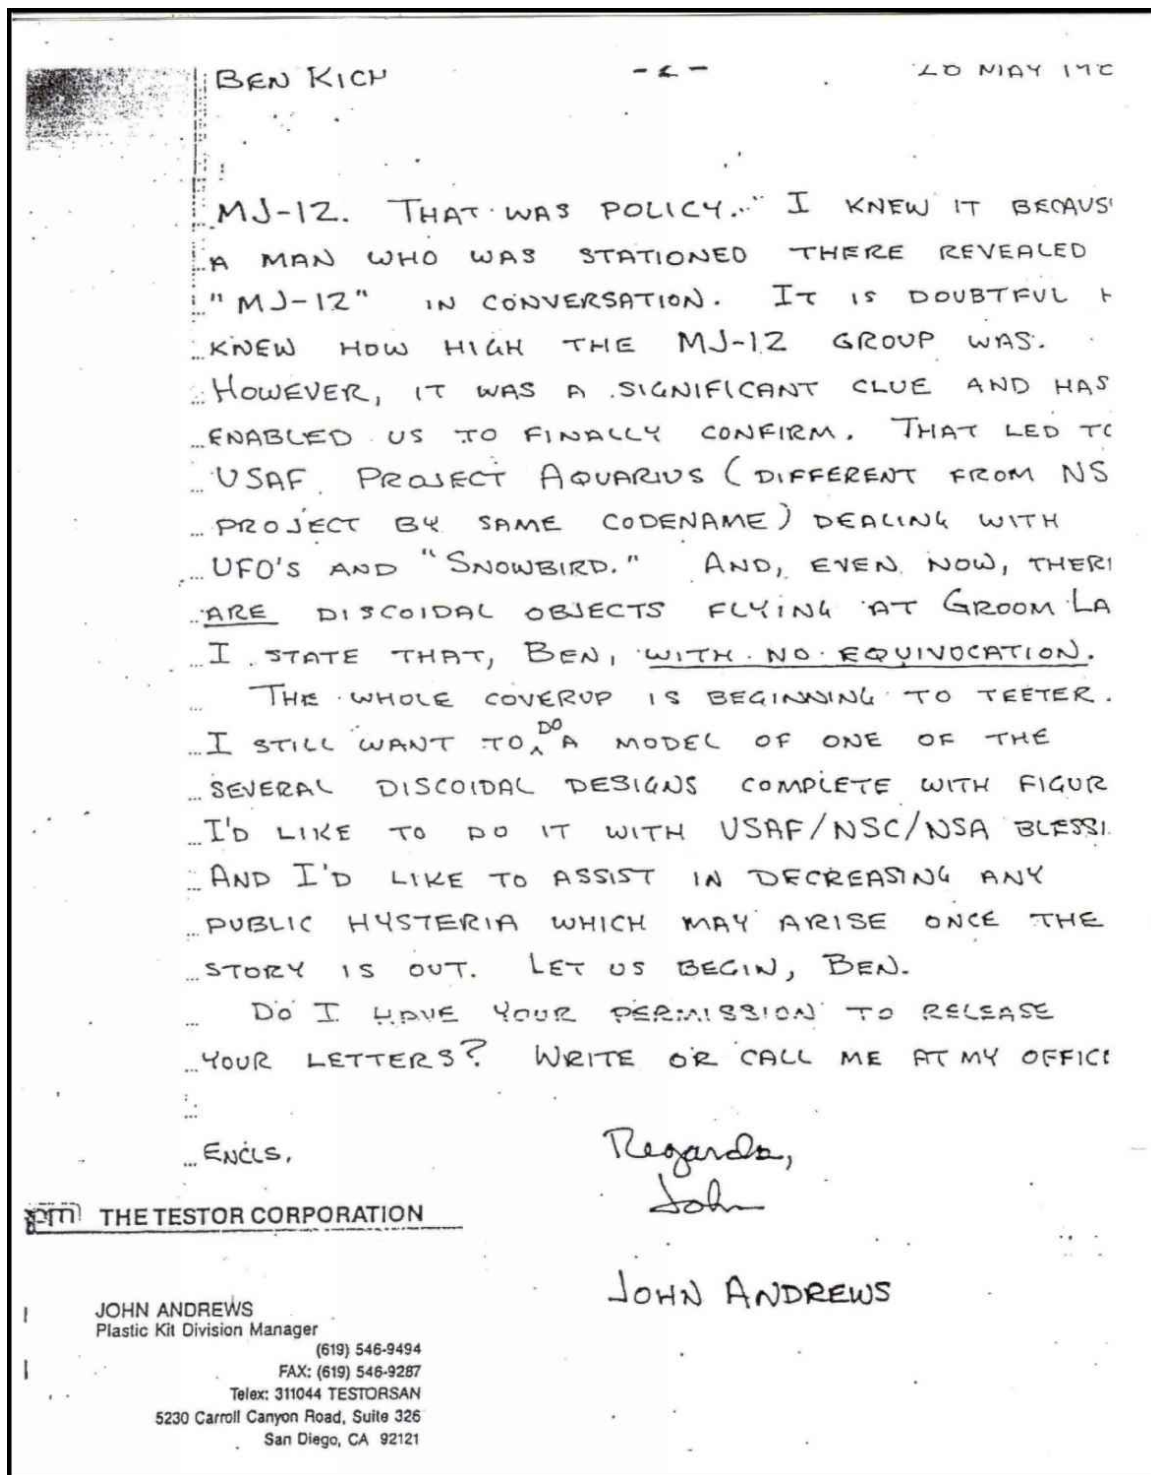 BEN RICH -2- 20 MAY
MJ-12. THAT WAS POLICY." I KNEW IT BECAUS
A MAN WHO WAS STATIONED THERE REVEALED
"MJ-12" IN CONVERSATION. IT IS DOUBTFUL
KNEW HOW HIGH THE MJ-12 GROUP WAS.
HOWEVER, IT WAS A SIGNIFICANT CLUE AND HAS
ENABLED US TO FINALLY CONFIRM. THAT LED TO
USAF PROJECT AQUARIUS (DIFFERENT FROM NS
PROJECT BY SAME CODENAME) DEALING WITH
UFO'S AND "SNOWBIRD." AND, EVEN NOW, THER
ARE DISCOIDAL OBJECTS FLYING AT GROOM LA
I STATE THAT, BEN, WITH NO EQUIVOCATION.
THE WHOLE COVERUP IS BEGINNING TO TEETER.
I STILL WANT TO DO A MODEL OF ONE OF THE
SEVERAL DISCOIDAL DESIGNS COMPLETE WITH FIGUR
I'D LIKE TO DO IT WITH USAF/NSC/NSA BLESSI
AND I'D LIKE TO ASSIST IN DECREASING ANY
PUBLIC HYSTERIA WHICH MAY ARISE ONCE THE
STORY IS OUT. LET US BEGIN, BEN.
DO I HAVE YOUR PERMISSION TO RELEASE
YOUR LETTERS? WRITE OR CALL ME AT MY OFFICE
ENCLS.
Regards,
John
JOHN ANDREWS
THE TESTOR CORPORATION
JOHN ANDREWS
Plastic Kit Division Manager
(619) 546-9494
FAX: (619) 546-9287
Telex: 311044 TESTORSAN
5230 Carroll Canyon Road, Suite 326
San Diego, CA 92121